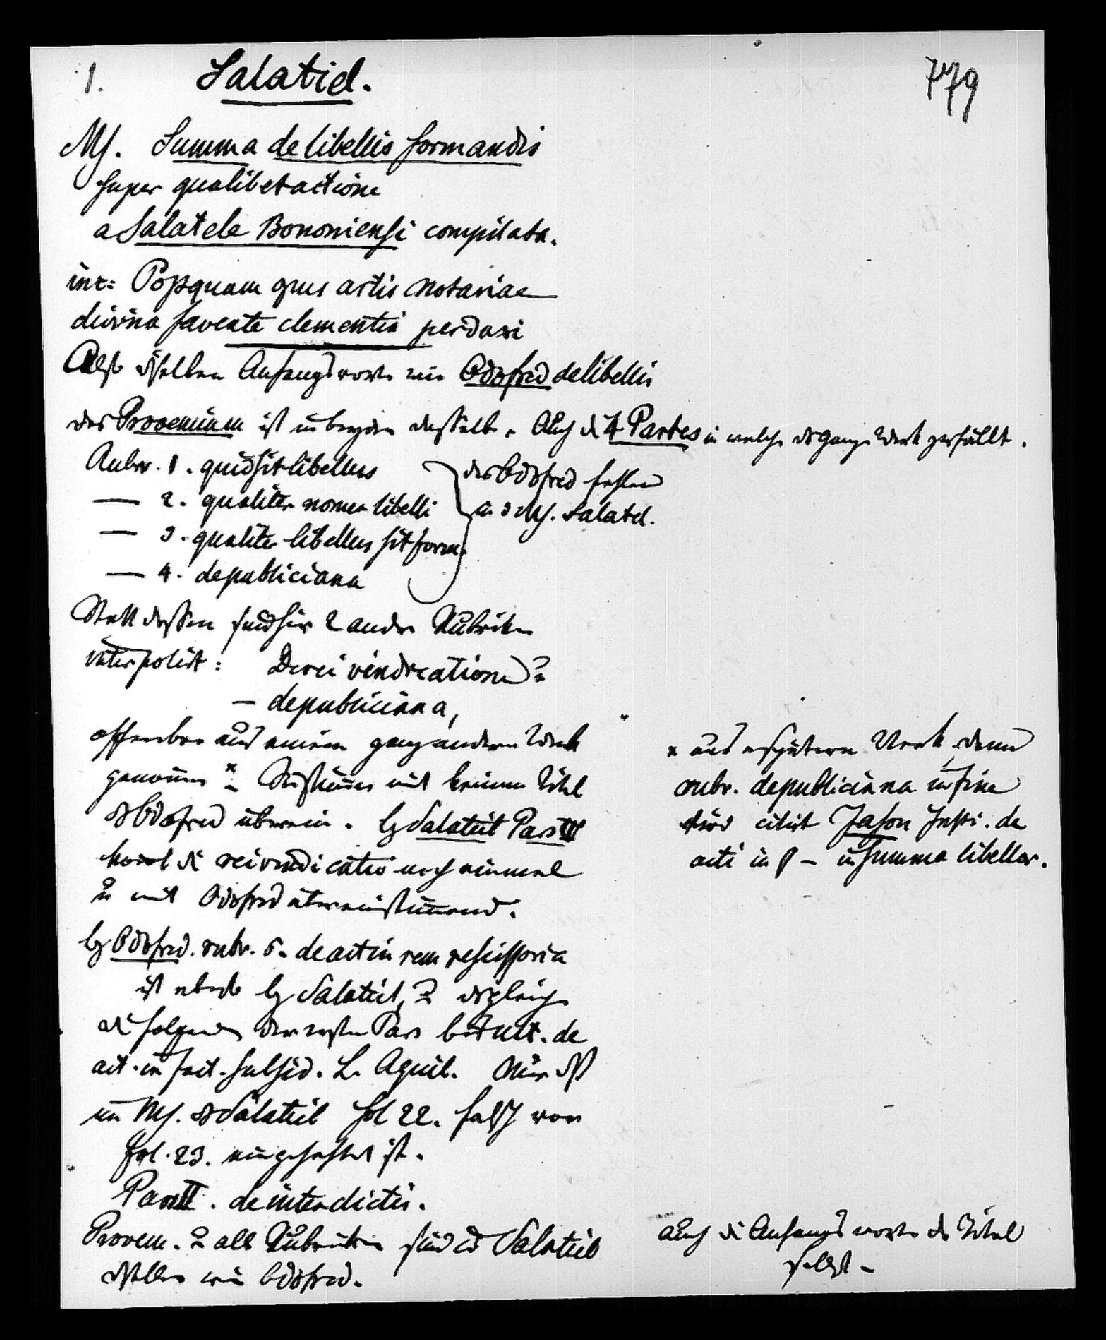 1. Salatiel. 779
Ms. Summa de libellis formandis
super qualibet actione
a Salatele Bononiensi compilata.
inc: Postquam opus artis notariae
divina favente clementia perduxi
Anfangsworte wie Odofred de libellis
das Prooemium ist in beyden dasselbe. Auch di 4 Partes in welche ds ganze Werk zerfällt.
Rubr. 1. quid sit libellus
— 2. qualiter nomen libelli
— 3. qualiter libellus sit form.
— 4. de publiciana
des Odofred fehlen
in d Ms. Salatel.
Statt dessen sind hier 2 andre Rubriken
interpolirt: De rei vendicatione u
— de publiciana,
offenbar aus einem ganz andern Werk
genommen x u stimmen mit keinem Titel
ds Odofred überein. Bey Salatiel Pars III
kommt di rei vindicatio noch einmal
u mit Odofred übereinstimmend.
x aus späterm Werk, denn
rubr. de publiciana in fine
wird citirt Jason Insti. de
acti in p — in summa libellor.
by Odofred. rubr. 5. de act in rem rescissoria
ist ebenso by Salatiel, u desgleich
di folgenden der ersten Pars bis tit. de
act. in fact. subsid. L. Aquil. Nur ist
im Ms. ds Salatiel fol 22. falsch vor
fol. 23. eingeheftet ist.
Pars II. de interdictis.
Prooem. u alle Rubriken sind im Salatiel
dieselben wie Odofred.
auch di Anfangsworte der Titel
selbst —